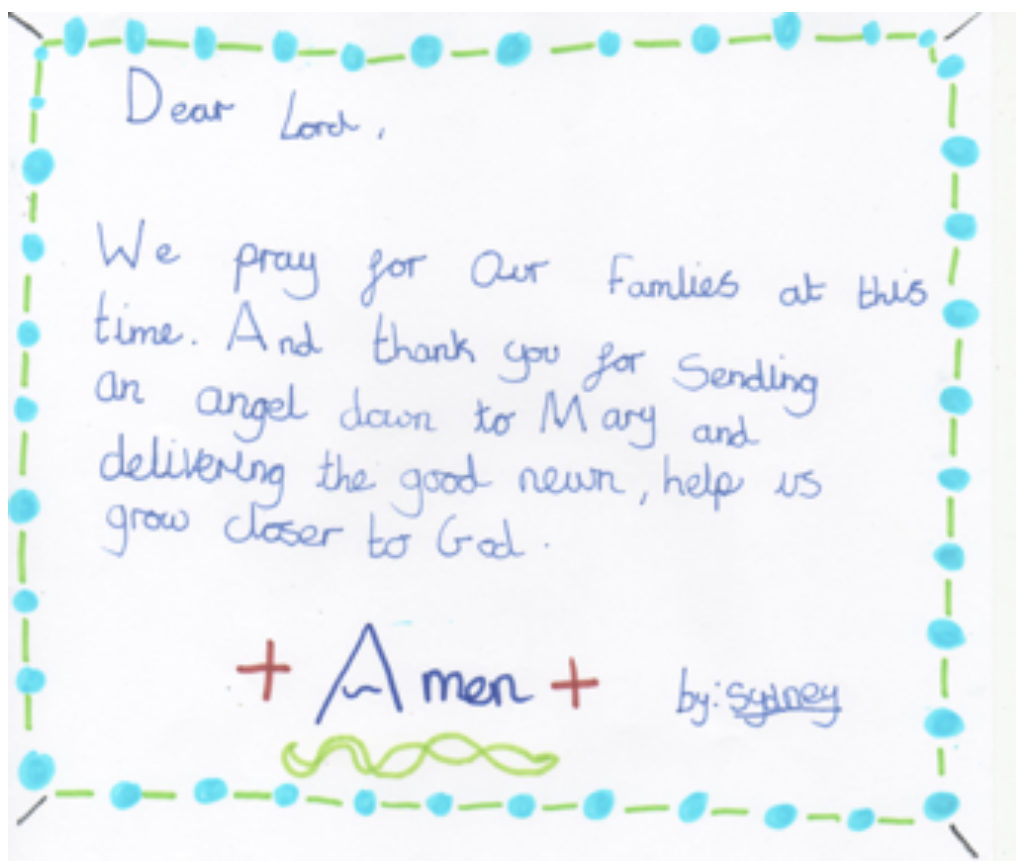 Dear Lord,
We pray for Our Famlies at this
time. And thank you for Sending
an angel down to Mary and
delivering the good newn, help us
grow closer to God.
+ Amen +
by: Sydney